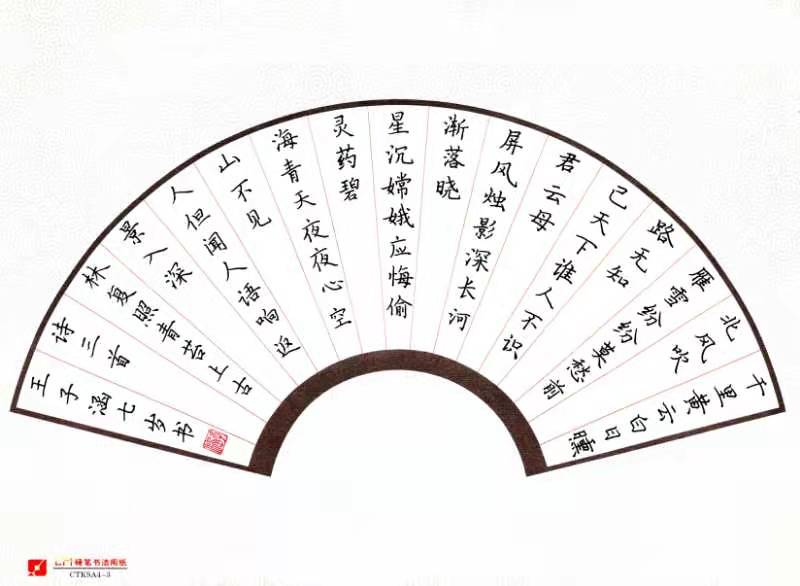 千里黄云白日曛
北风吹
雁雪纷纷莫愁前
路无知
己天下谁人不识
君云母
屏风烛影深长河
渐落晓
星沉嫦娥应悔偷
灵药碧
海青天夜夜心空
山不见
人但闻人语响返
景入深
林复照青苔上古
诗三首
王子涵七岁书
硬笔书法用纸
CTKSA4-3